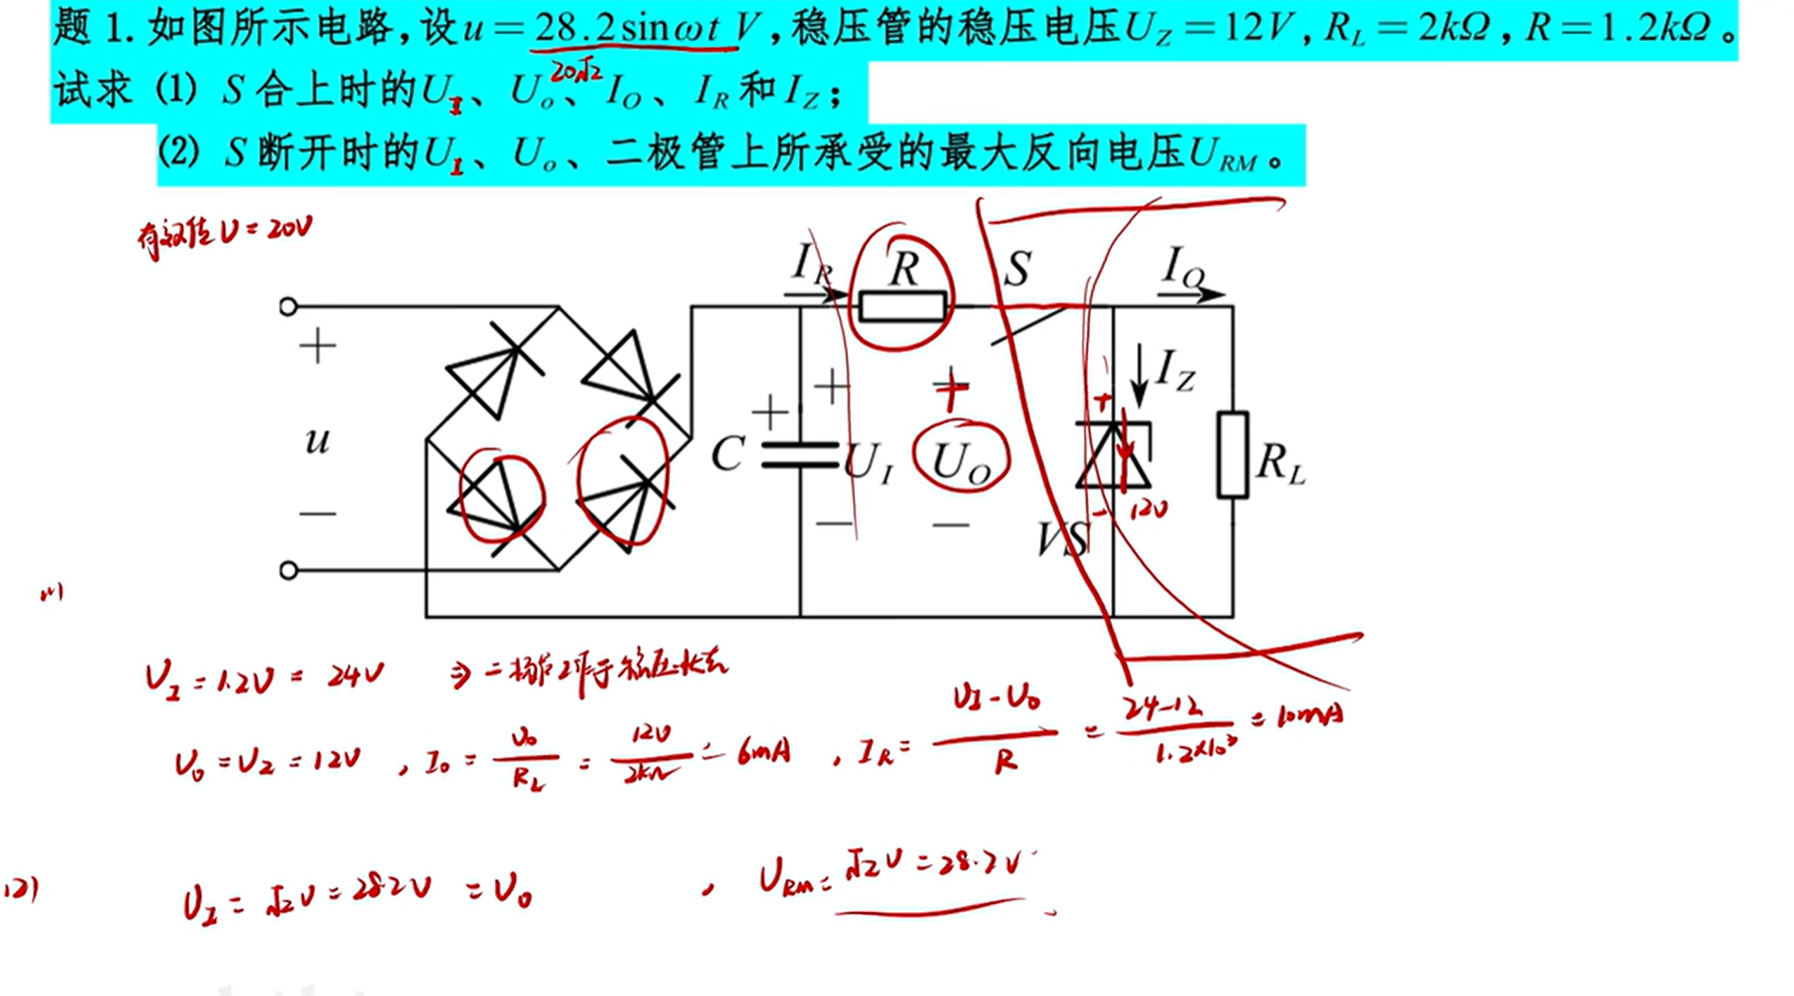 题 1. 如图所示电路,设u=28.2sinωt V,稳压管的稳压电压U_Z=12V,R_L=2kΩ,R=1.2kΩ。
20√2
试求 (1) S合上时的U_I、U_o、I_O、I_R和I_Z;
(2) S断开时的U_I、U_o、二极管上所承受的最大反向电压U_RM。
有效值U=20V
I_R R S I_O
+ + + + I_Z
u C + U_I U_O R_L
− − − − 12V
VS
(1)
U_I=1.2U=24V ⇒二极管工作于稳压状态
U_o=U_Z=12V , I_o=U_o/R_L=12V/2kΩ=6mA , I_R=(U_I-U_o)/R=(24-12)/(1.2×10³)=10mA
(2) U_I=√2U=28.2V=U_o , U_RM=√2U=28.2V